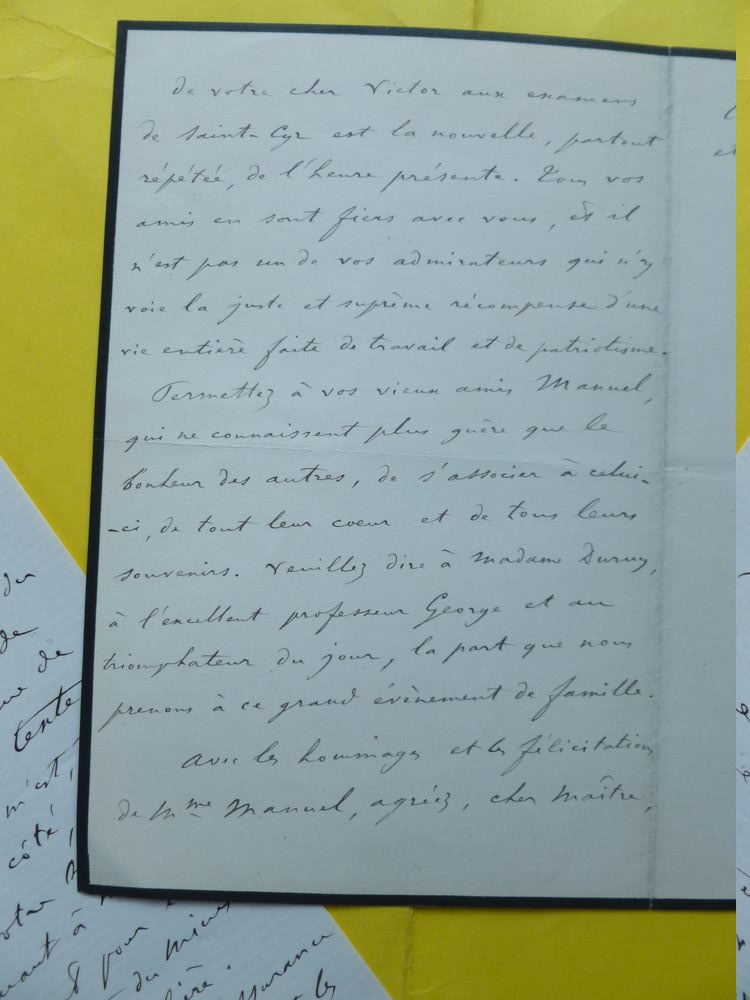 de votre cher Victor aux examens
de Saint-Cyr est la nouvelle, partout
répétée, de l'heure présente. Tous vos
amis en sont fiers avec vous, et il
n'est pas un de vos admirateurs qui n'y
voie la juste et suprème récompense d'une
vie entière faite de travail et de patriotisme.
Permettez à vos vieux amis Manuel,
qui ne connaissent plus guère que le
bonheur des autres, de s'associer à celui-
-ci, de tout leur coeur et de tous leurs
souvenirs. Veuillez dire à Madame Duruy,
à l'excellent professeur George et au
triomphateur du jour, la part que nous
prenons à ce grand évènement de famille.
Avec les hommages et les félicitations
de Mme Manuel, agréez, cher Maître,
et
du
de
de
tente
m'est,
côté,
votre
quant à
pour
du mieux
assurance
les